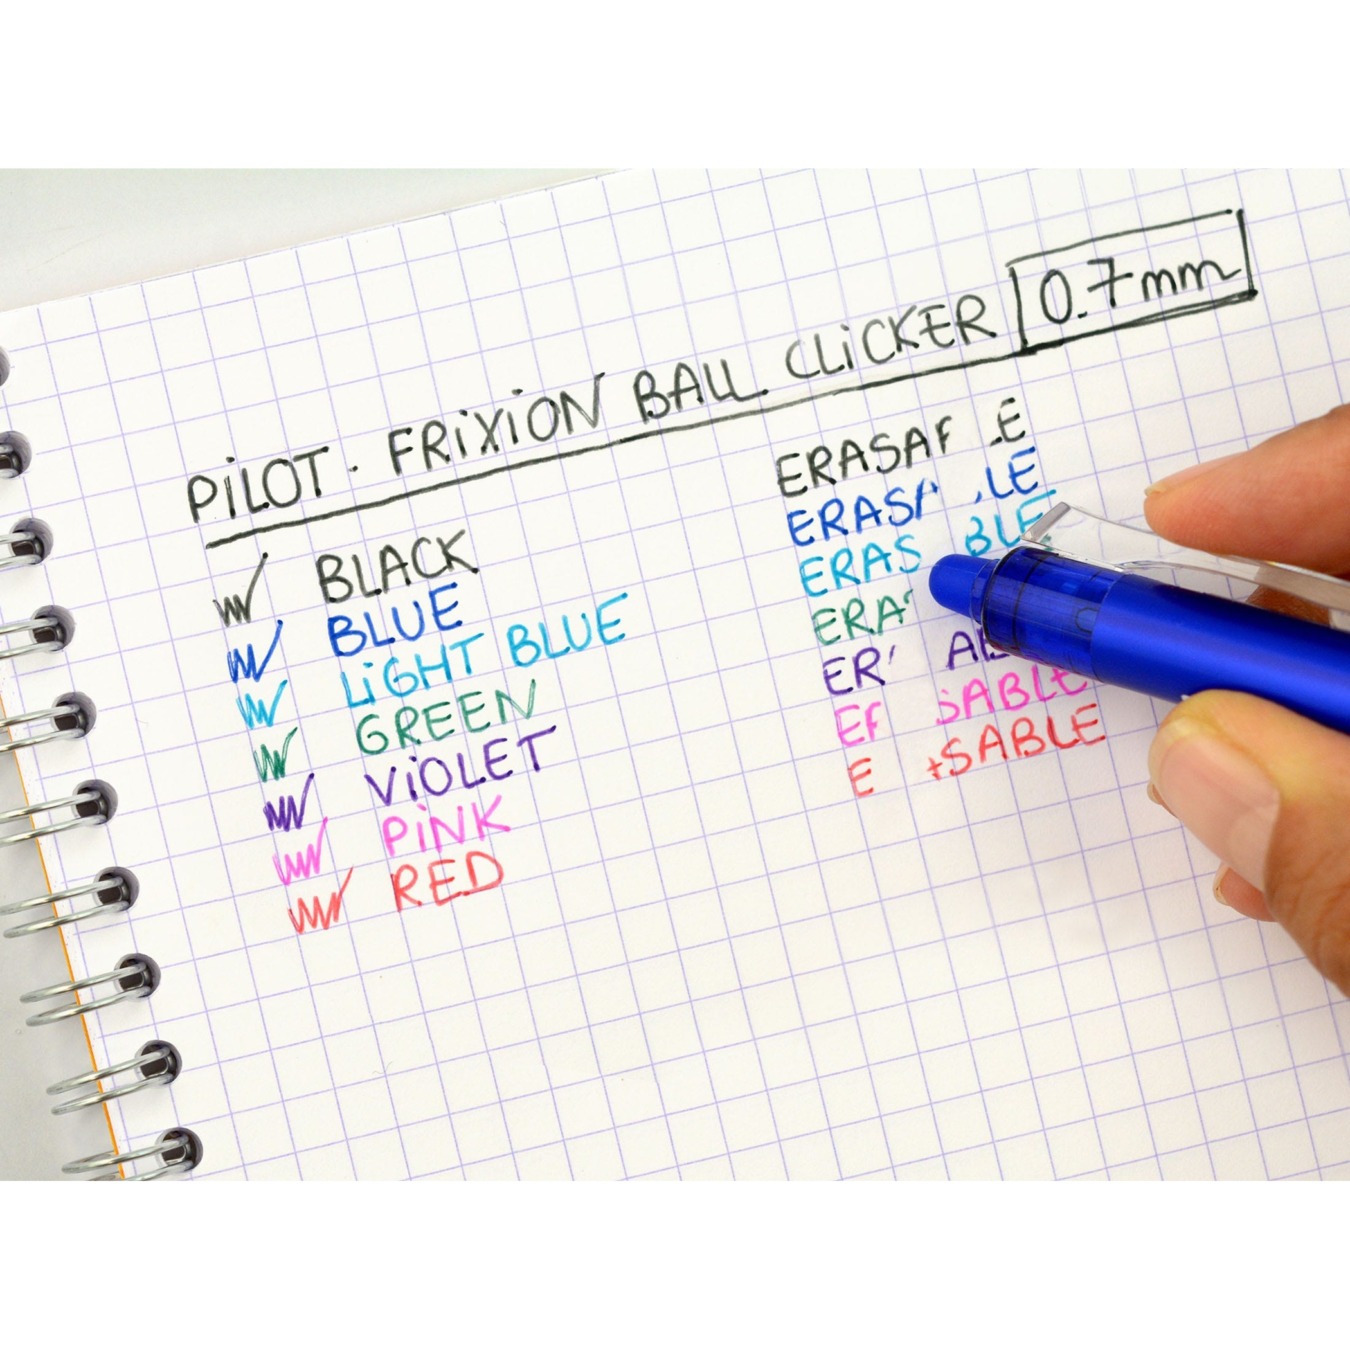 PiLOT - FRiXiON BALL CLiCKER 0.7mm
BLACK
BLUE
LiGHT BLUE
GREEN
ViOLET
PiNK
RED
ERASA E
ERAS LE
ERAS BLE
ERA
ER AB
E SABLE
E SABLE